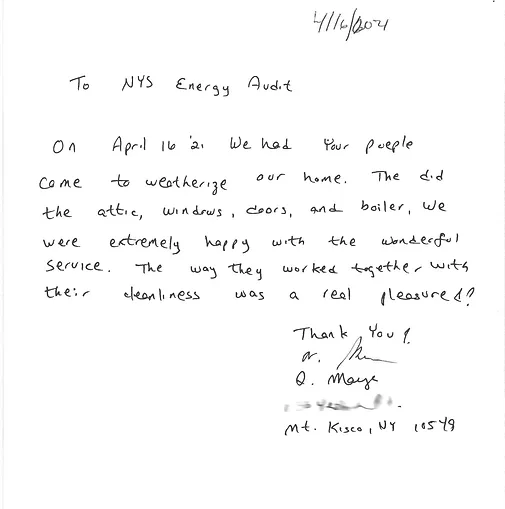 4/16/2021
To NYS Energy Audit
On April 16 '21 We had Your people
come to weatherize our home. The did
the attic, windows, doors, and boiler, we
were extremely happy with the wonderful
service. The way they worked together with
their cleanliness was a real pleasure!
Thank You!
Mt. Kisco, NY 10549